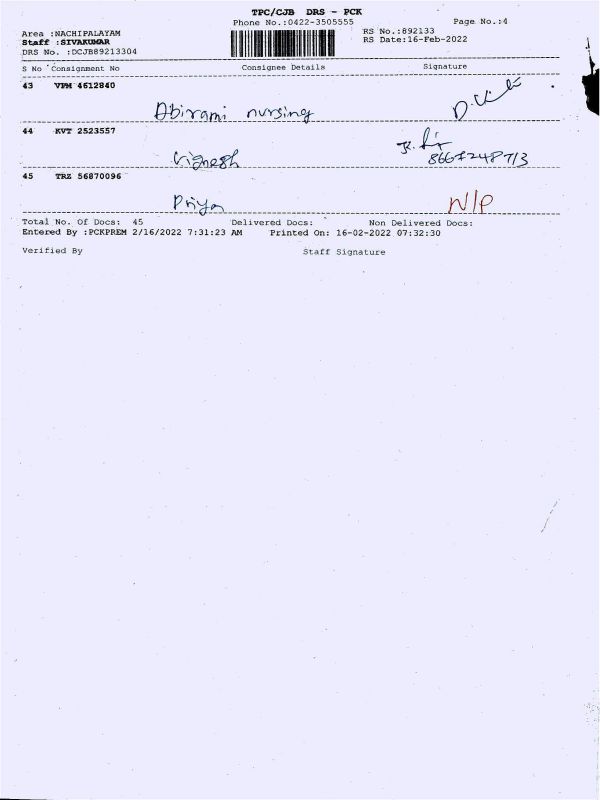 TPC/CJB DRS - PCK
Phone No.:0422-3505555 Page No.:4
Area :NACHIPALAYAM
RS No.:892133
Staff :SIVAKUMAR
RS Date:16-Feb-2022
DRS No. :DCJB89213304
S No Consignment No Consignee Details Signature
43 VPM 4612840
Abirami nursing
44 KVT 2523557
Vignesh 8667248713
45 TRZ 56870096
Priya N/P
Total No. Of Docs: 45 Delivered Docs: Non Delivered Docs:
Entered By :PCKPREM 2/16/2022 7:31:23 AM Printed On: 16-02-2022 07:32:30
Verified By Staff Signature